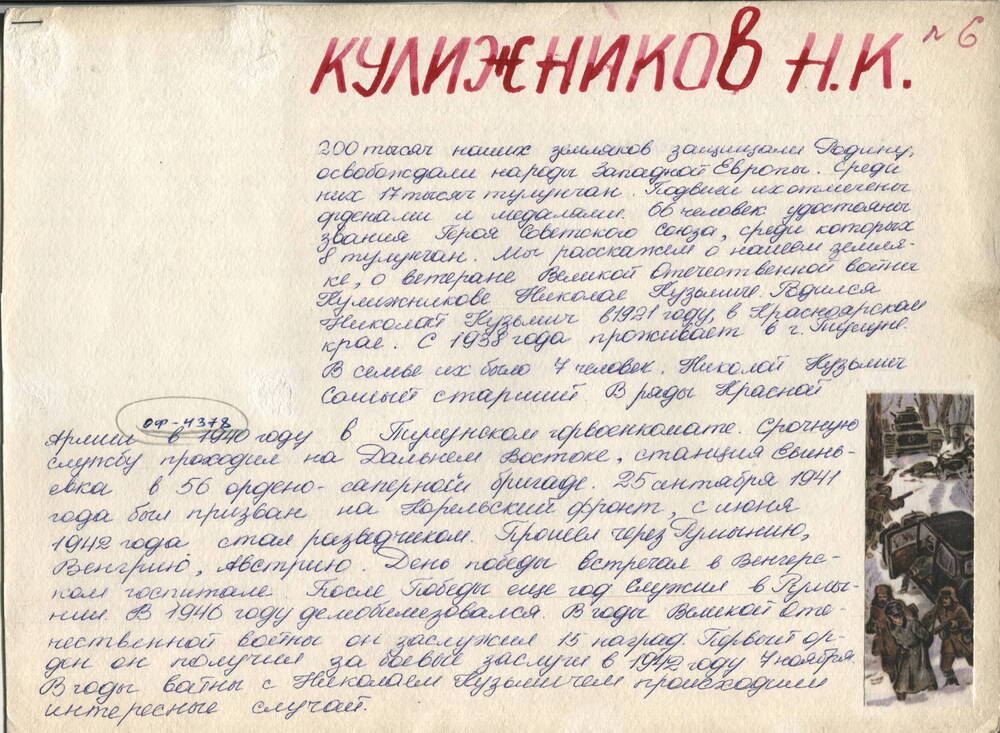 КУЛИЖНИКОВ Н.К.
№ 6
200 тысяч наших земляков защищали Родину,
освобождали народы Западной Европы. Среди
них 17 тысяч тулунчан. Подвиги их отмечены
орденами и медалями. 66 человек удостояны
звания Героя Советского Союза, среди которых
8 тулунчан. Мы расскажем о нашем земля-
ке, о ветеране Великой Отечественной войны
Кулижникове Николае Кузьмиче. Родился
Николай Кузьмич в 1921 году, в Красноярском
крае. С 1938 года проживает в г. Тулуне.
В семье их было 7 человек. Николай Кузьмич
самый старший. В ряды Красной
ОФ-4378
Армии в 1940 году в Тулунском горвоенкомате. Срочную
службу проходил на Дальнем Востоке, станция Свинь-
евка в 56 ордено-саперной бригаде. 25 сентября 1941
года был призван на Корельский фронт, с июня
1942 года стал разведчиком. Прошел через Румынию,
Венгрию, Австрию. День победы встречал в Венгерс-
ком госпитале. После Победы еще год служил в Румы-
нии. В 1946 году демобилезовался. В годы Великой Оте-
чественной войты он заслужил 15 наград. Первый ор-
ден он получил за боевые заслуги в 1942 году 7 ноября.
В годы войны с Николаем Кузьмичем происходили
интересные случай.